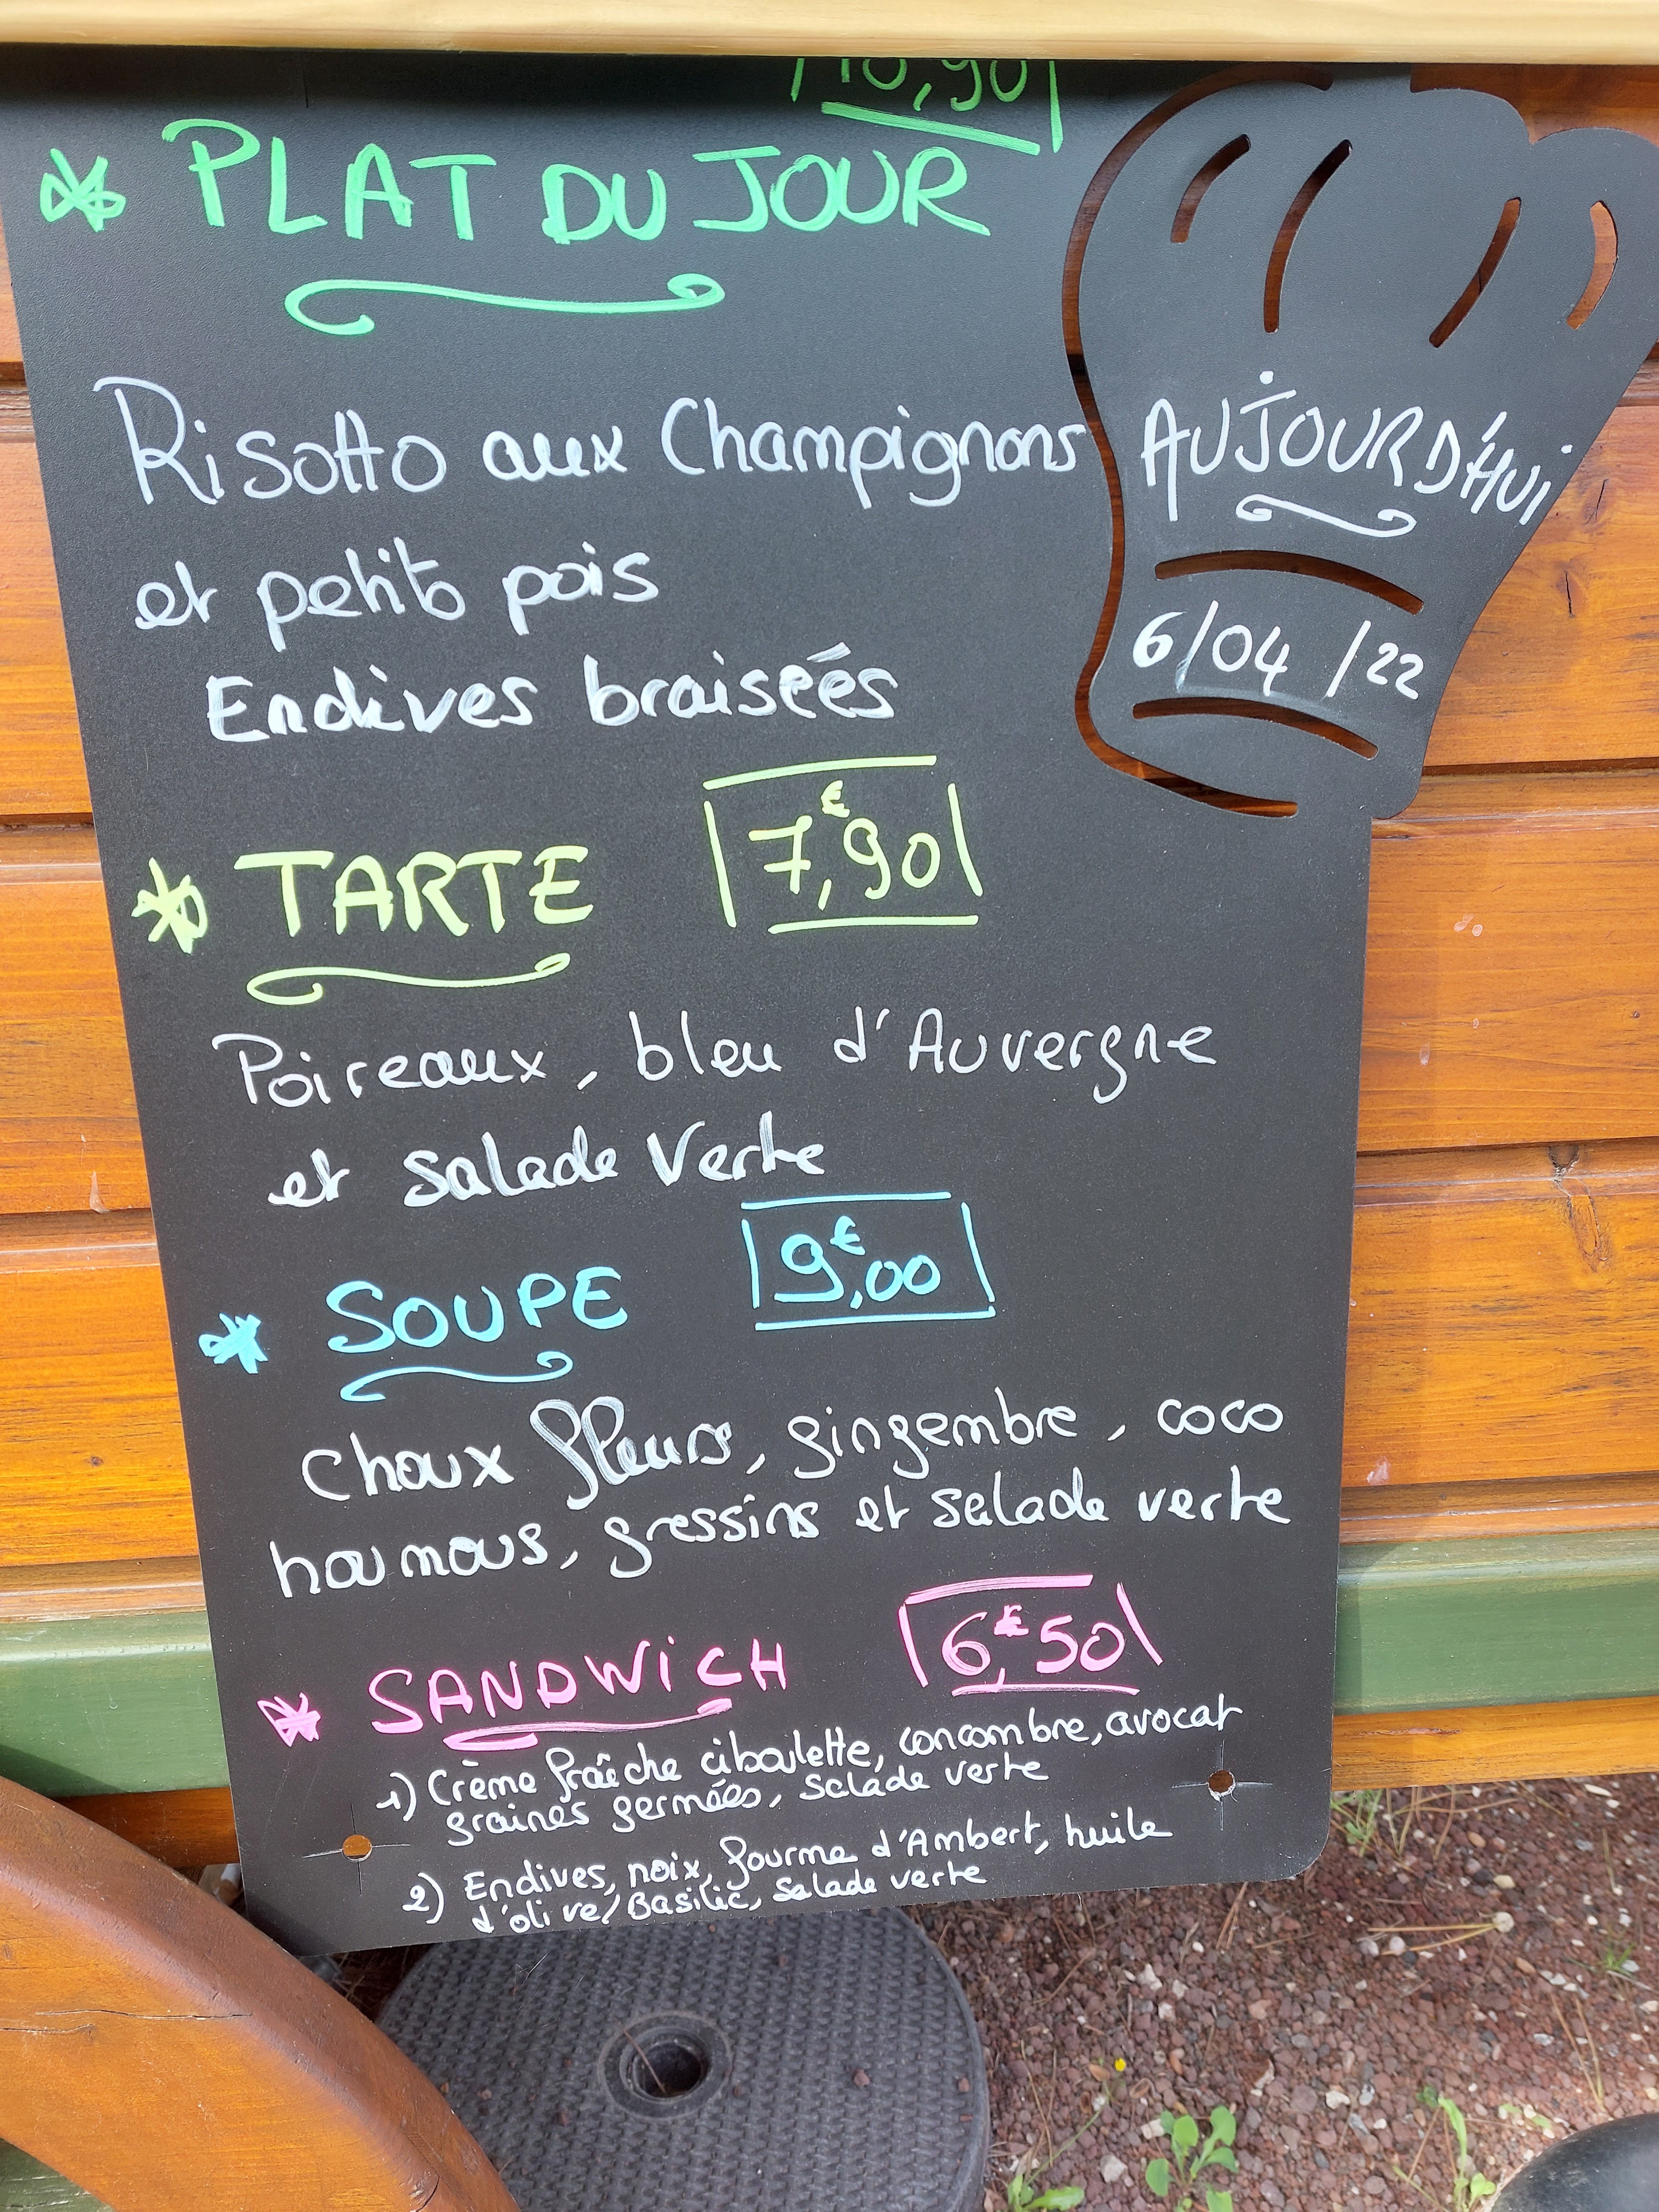 10,90
* PLAT DU JOUR
Risotto aux Champignons
et petits pois
Endives braiseés
AUJOURD'HUi
6/04/22
* TARTE 7,€90
Poireaux, bleu d'Auvergne
et salade Verte
* SOUPE 9,€00
Choux fleurs, gingembre, coco
houmous, gressins et salade verte
* SANDWiCH 6,€50
1) Crème fraîche ciboulette, concombre, avocat
graines germées, salade verte
2) Endives, noix, fourme d'Ambert, huile
d'olive/Basilic, salade verte